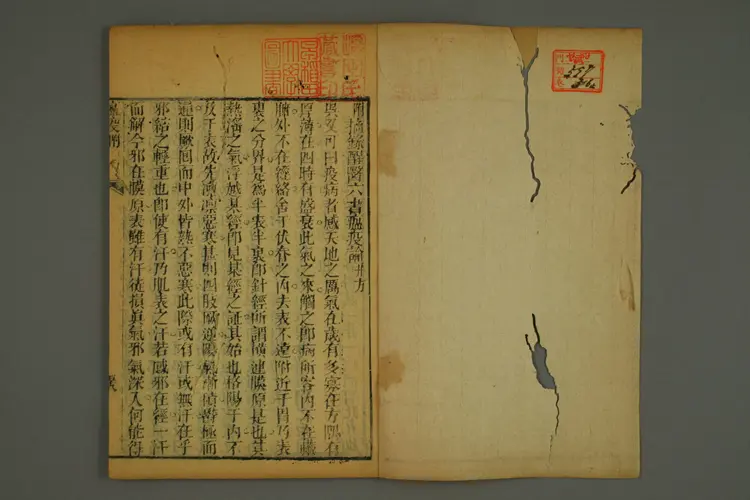 摘錄醒醫六書瘟疫論并方
吳又可曰疫病者感天地之厲氣在歲有多寡在方隅有
厚薄在四時有盛衰此氣之來觸之即病所客內不在臟
腑外不在經絡舍于伏脊之內去表不遠附近于胃乃表
裏之分界是為半表半裏即針經所謂橫連膜原是也其
熱淫之氣浮越某經即見某經之証其始也格陽于內不
及于表故先凜凜惡寒甚則四肢厥逆陽氣漸積鬱極而
通則厥回而中外皆熱不惡寒此際或有汗或無汗在乎
邪結之輕重也即使有汗乃肌表之汗若感邪在經一汗
而解今邪在膜原表雖有汗徒損真氣邪氣深入何能得